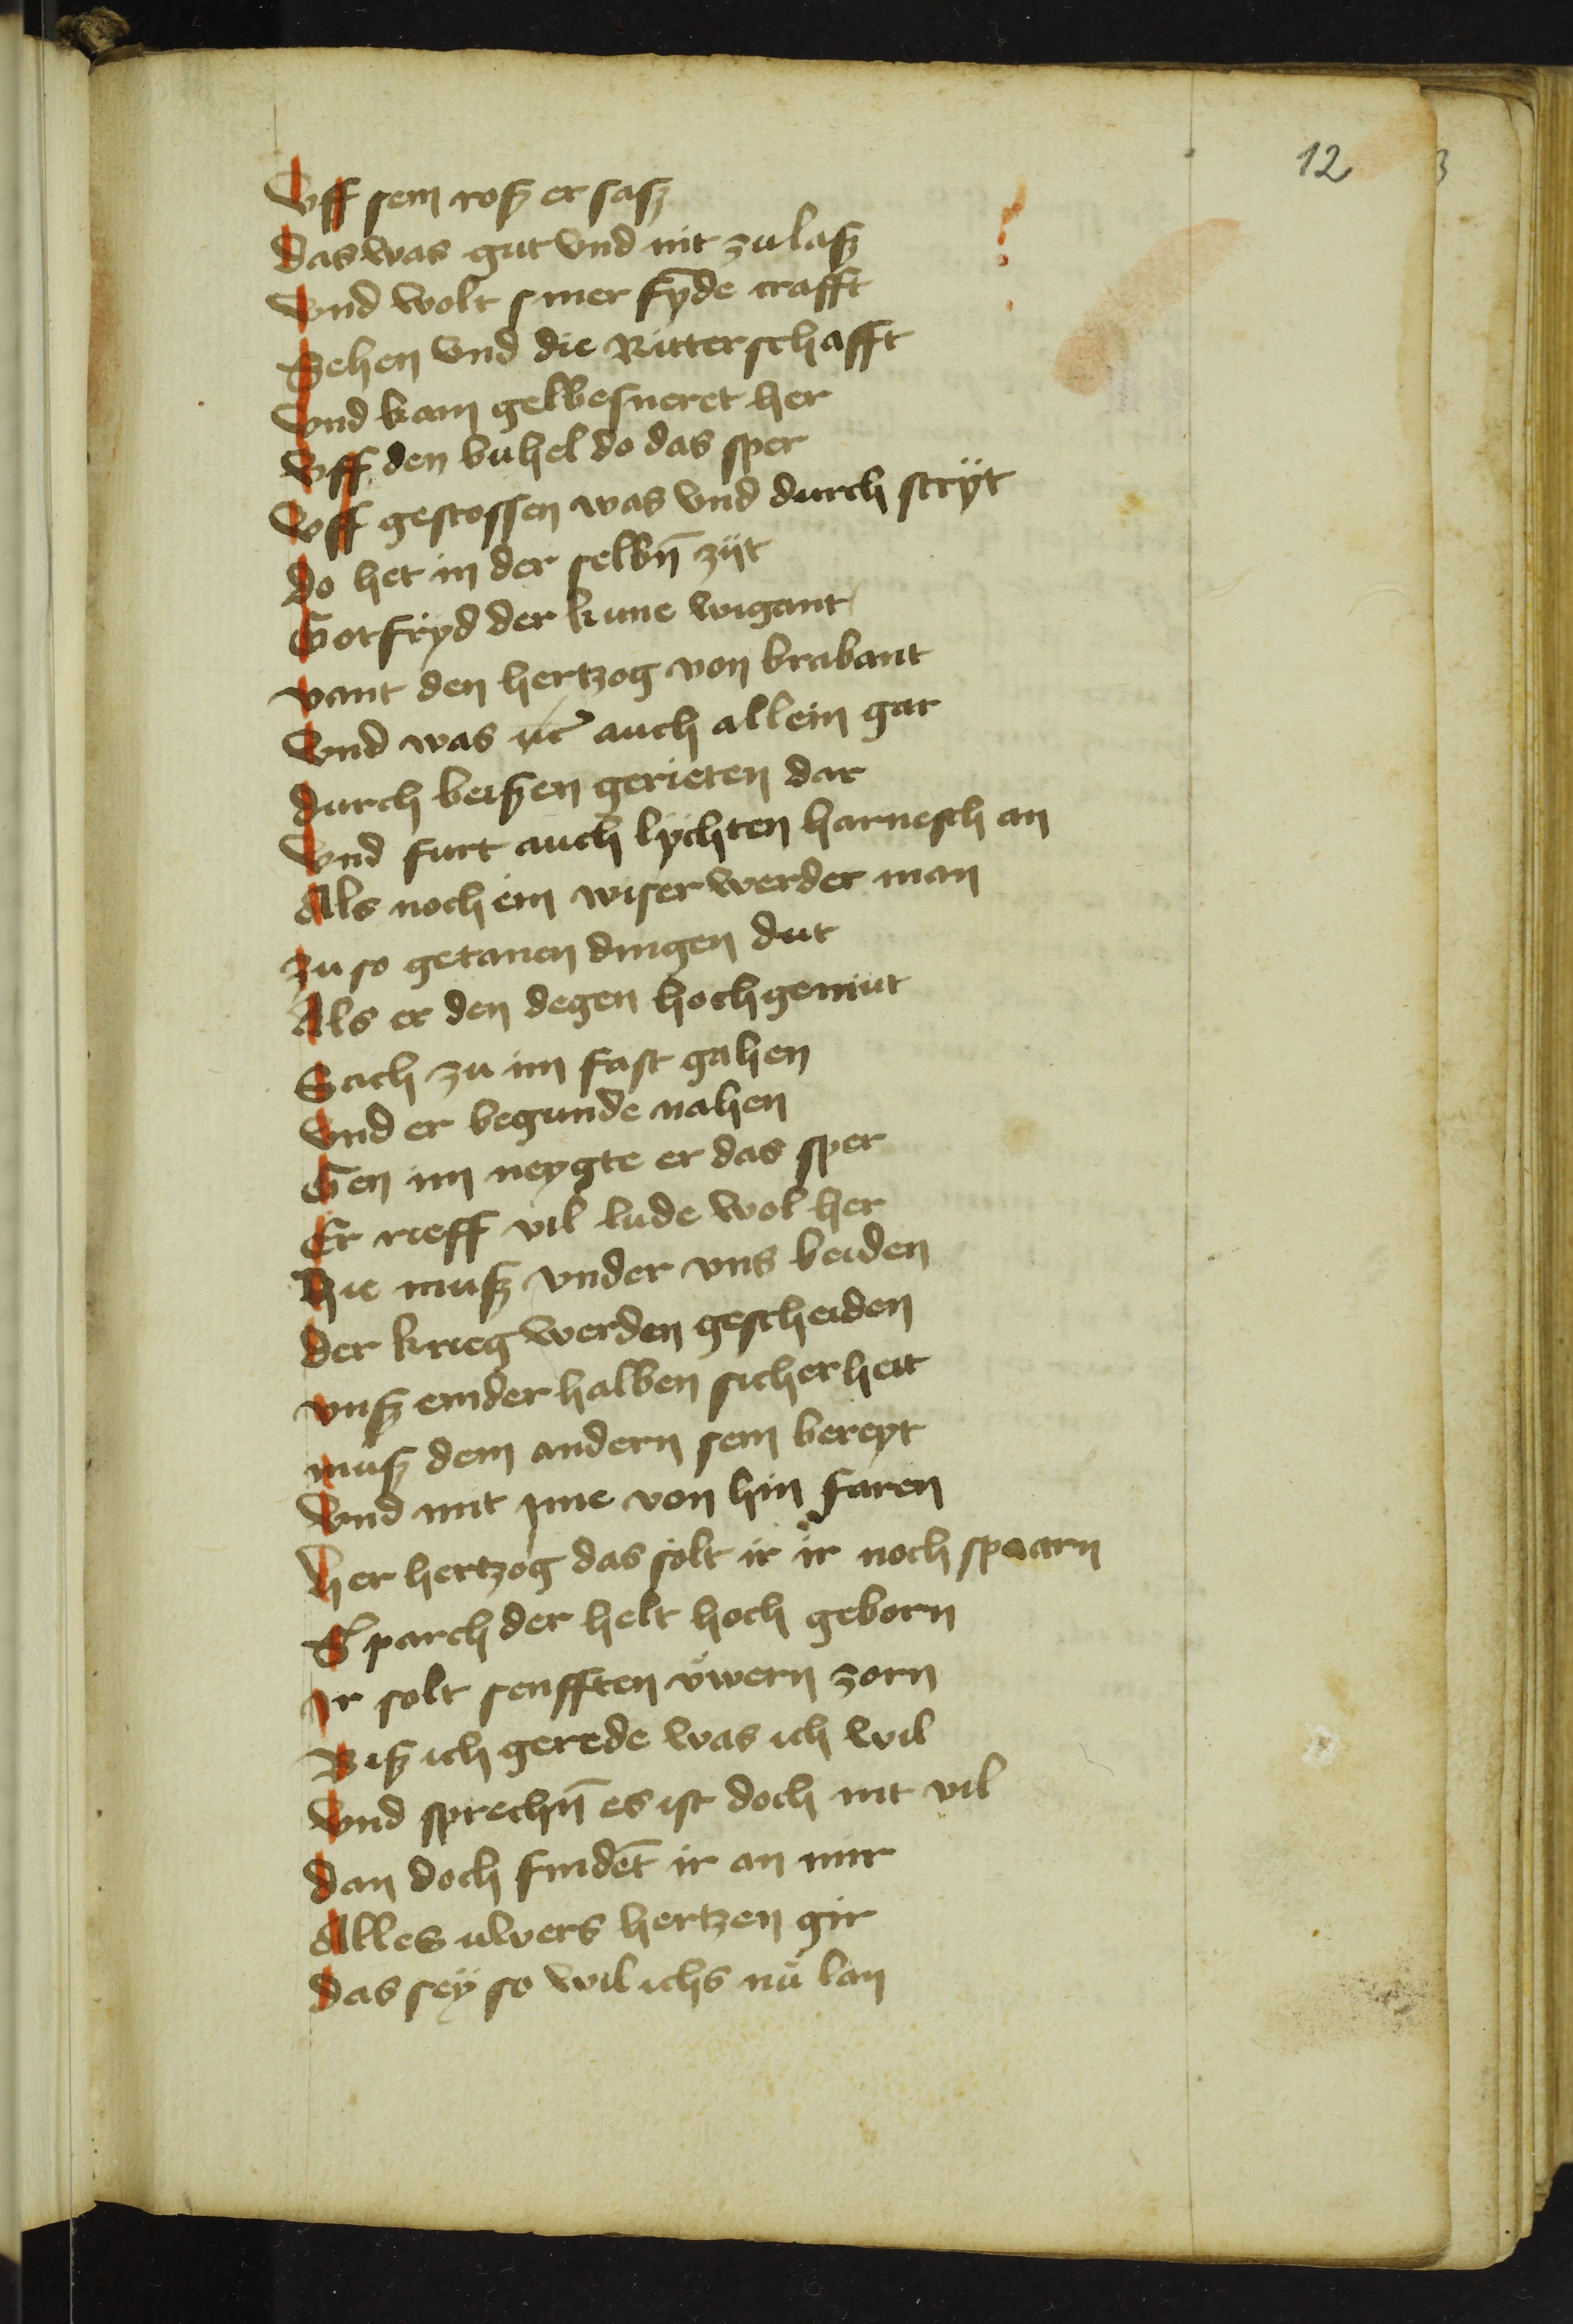 12
Vff sein roß er saß
das was gut vnd nit zu laß
Vnd wolt siner fyde crafft
Sehen vnd die Ritterschafft
Vnd kam gelbesneret her
Vff den buhel do das sper
Vff gestossen was vnd durch stryt
do het in der selbn̄ zijt
Gotfryd der kune wigant
vant den hertzog von brabant
Vnd was auch allein gar
durch beißen gerieten dar
Vnd furt auch lychten harnesch an
Als noch ein wiser werder man
Zu so getanen dingen dut
Als er den degen hochgemut
Sach zu im fast gahen
Vnd er begunde nahen
Gen im neygte er das sper
Er rieff vil lude wol her
Hie muß vnder vns beiden
der krieg werden gescheiden
vnß einder halben sicherheit
muß dem andern sein bereyt
Vnd mit ime von hin faren
her hertzog das solt ir ir noch spaarn
Sparch der helt hoch geborn
Ir solt senfften vwern zorn
Biß ich gerede was ich wil
Vnd sprechn̄ es ist doch nit vil
dan doch findet̄ ir an mir
Alles uwers hertzen gir
das sey so wil ichs nů lan